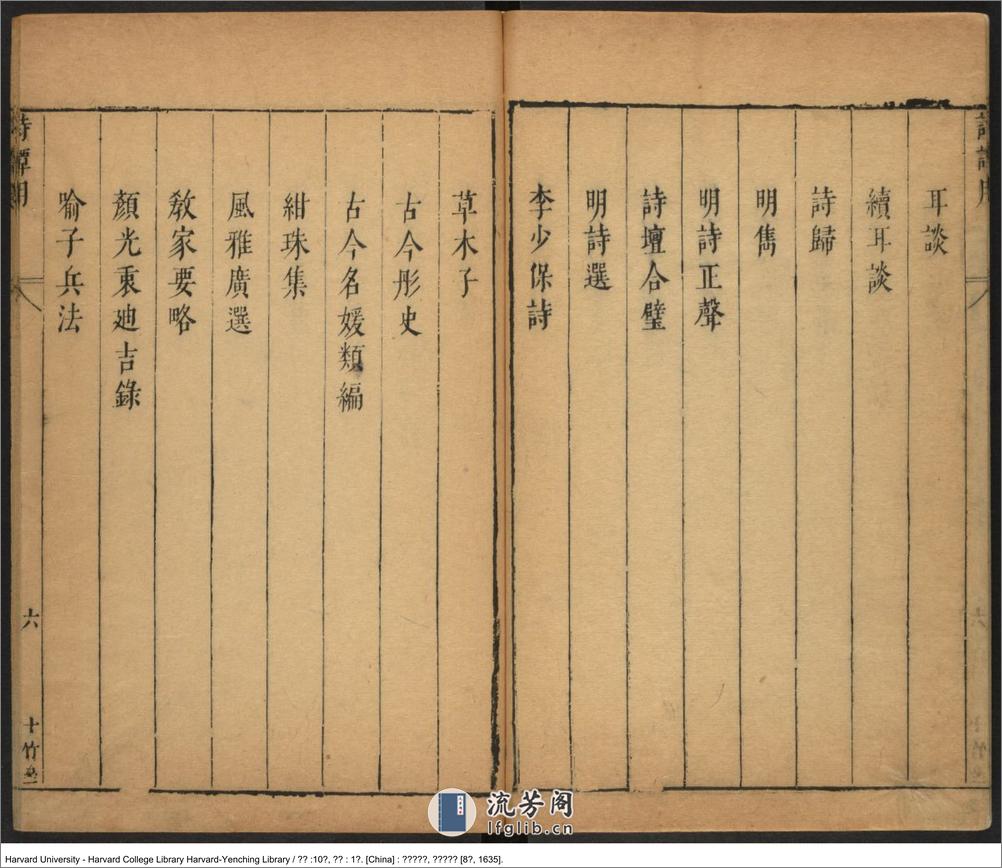 耳談
續耳談
詩歸
明雋
明詩正聲
詩壇合璧
明詩選
李少保詩
草木子
古今彤史
古今名媛類編
紺珠集
風雅廣選
敎家要略
顏光衷廸吉錄
喻子兵法
詩譚用
六
十竹
流芳阁
lfglib.cn
Harvard University - Harvard College Library Harvard-Yenching Library / ?? :10?, ?? : 1?. [China] : ?????, ????? [8?, 1635].